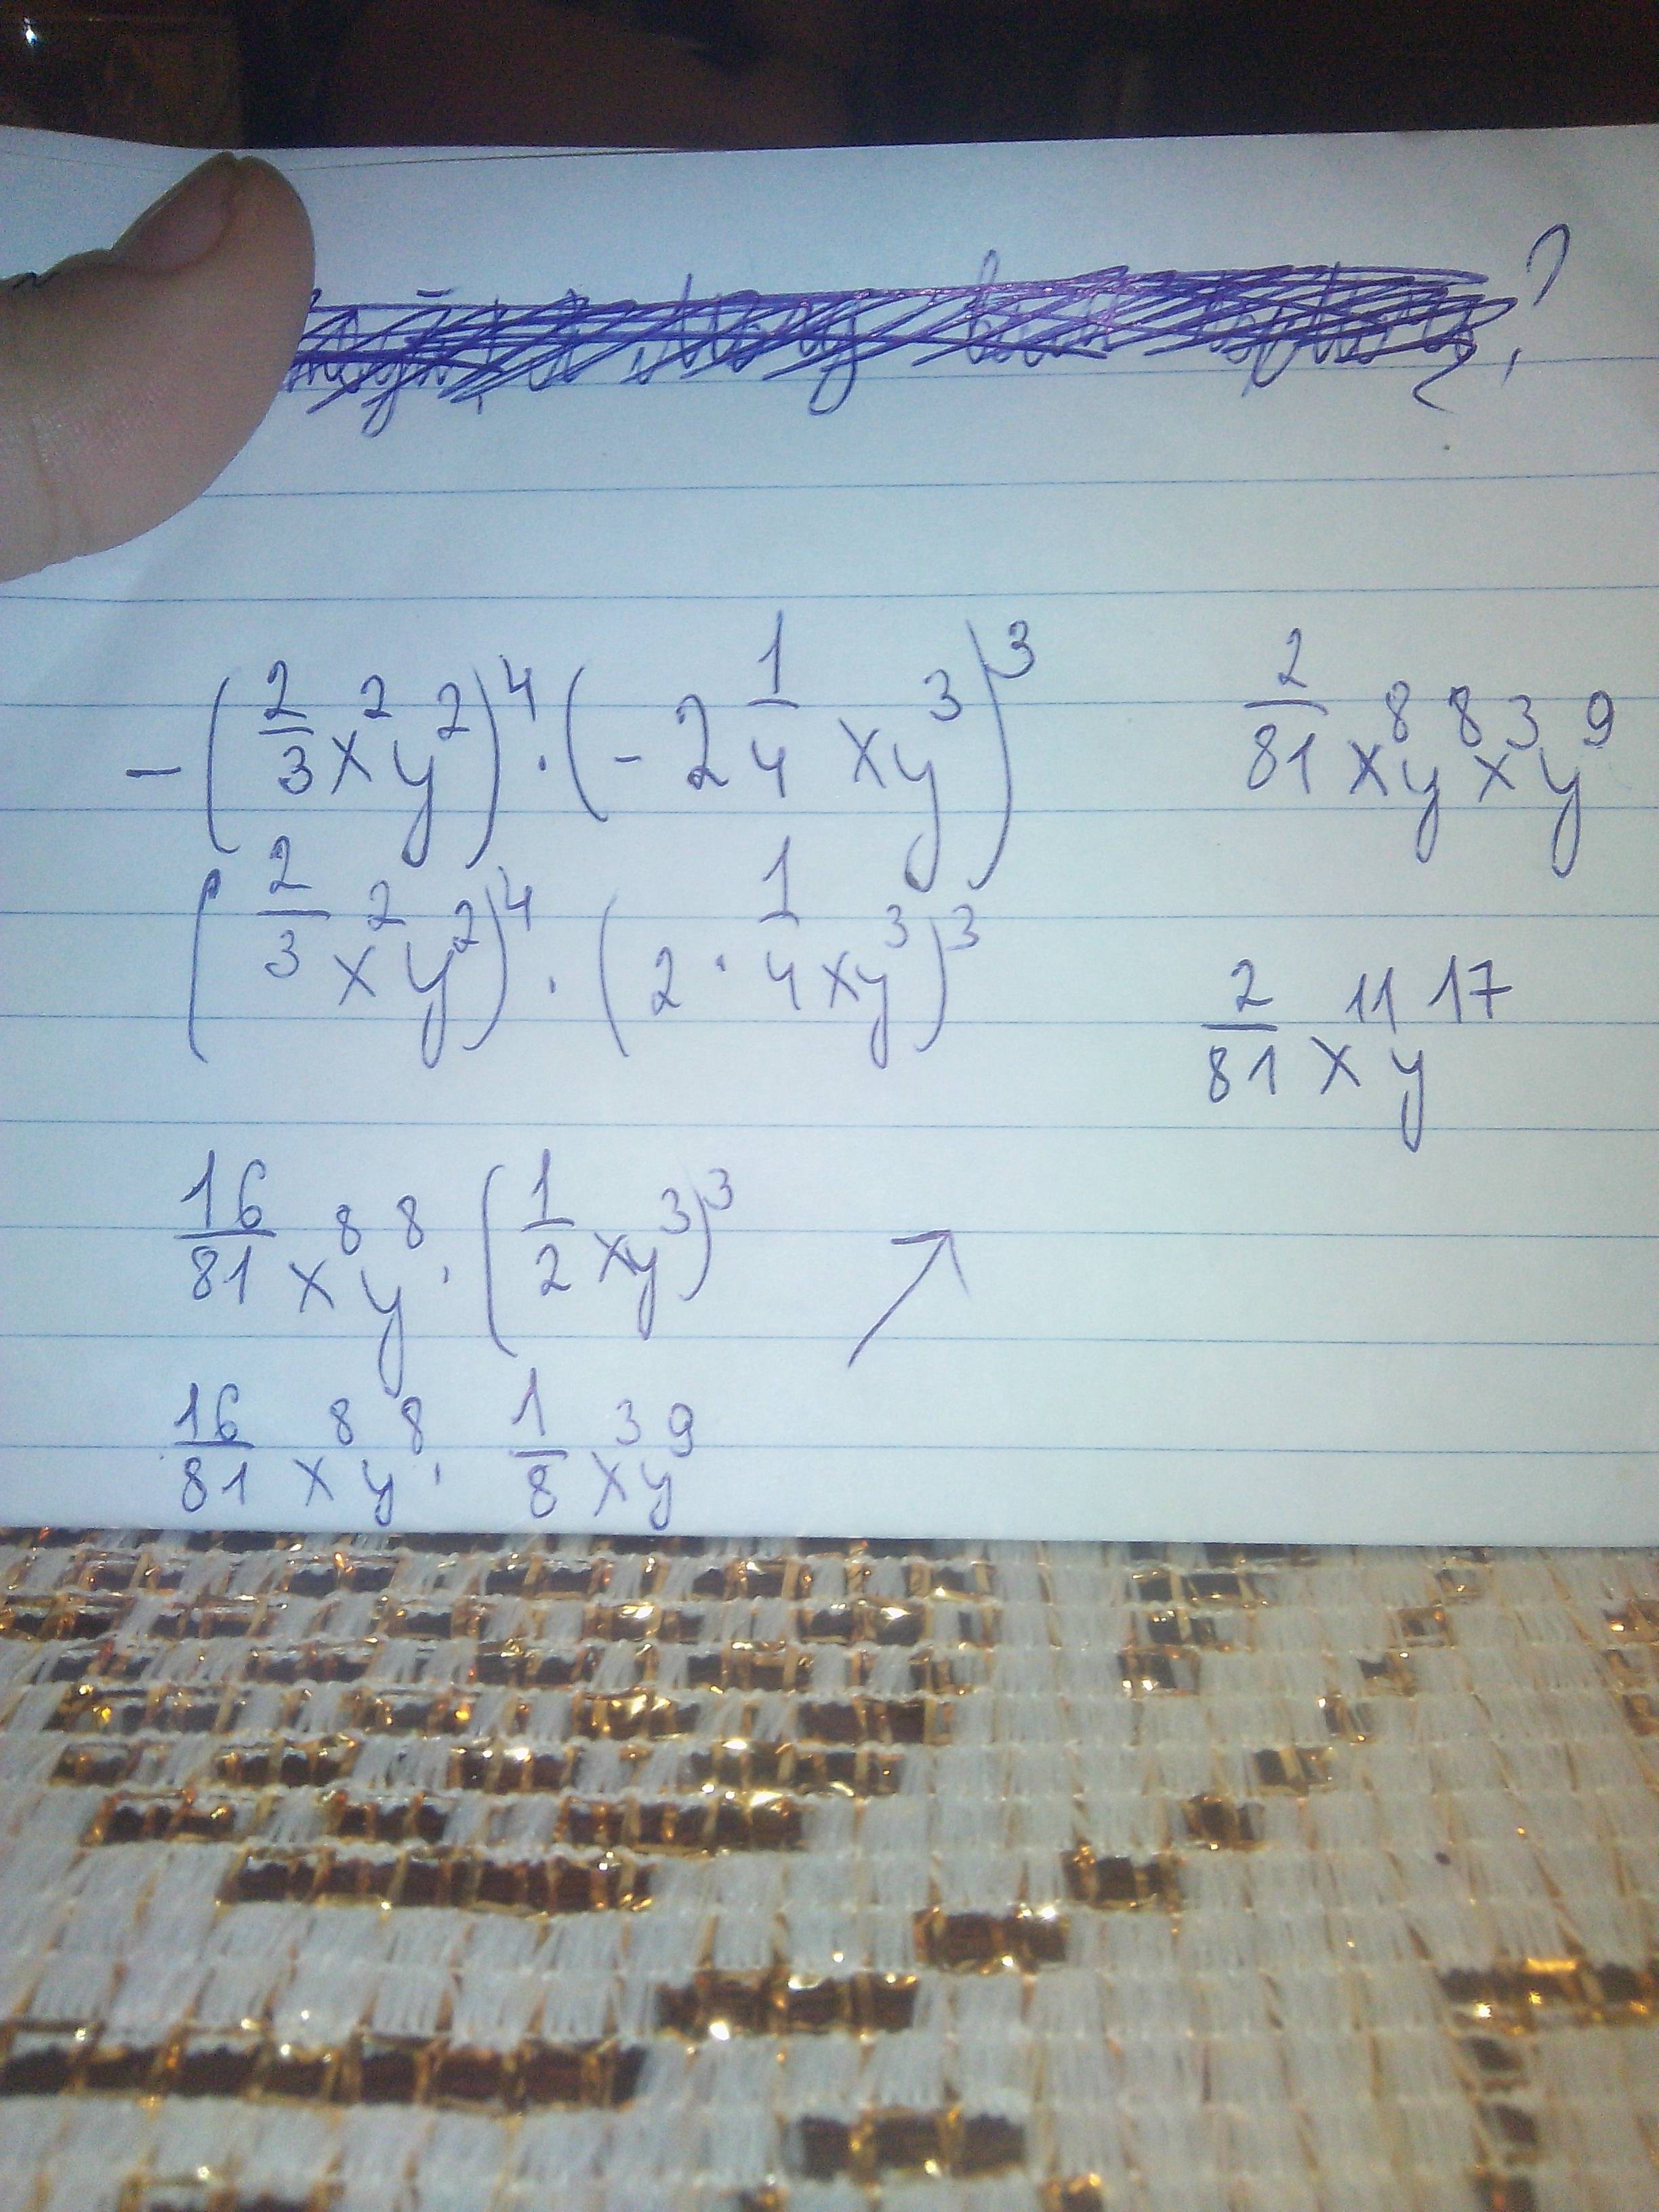 ?
-(2/3 x²y²)⁴ · (-2 1/4 xy³)³
(2/3 x²y²)⁴ · (2 · 1/4 xy³)³
16/81 x⁸y⁸ · (1/2 xy³)³
16/81 x⁸y⁸ · 1/8 x³y⁹
2/81 x⁸y⁸x³y⁹
2/81 x¹¹y¹⁷